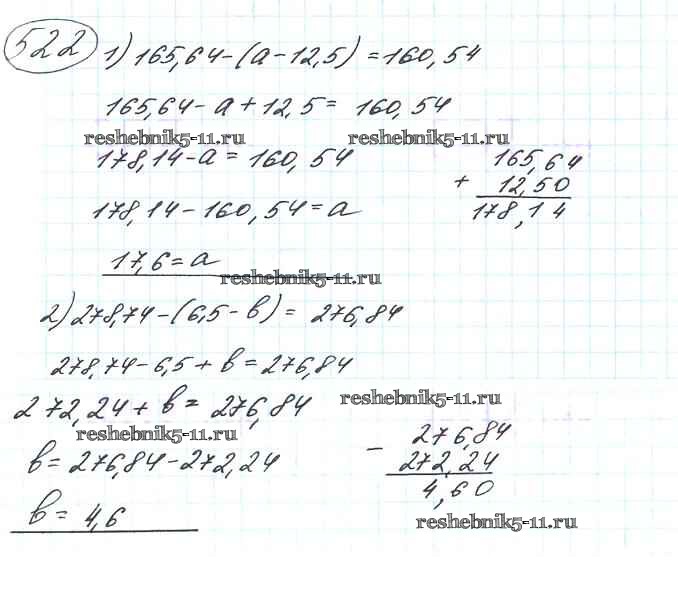 522 1) 165,64-(a-12,5)=160,54
165,64-a+12,5= 160,54
reshebnik5-11.ru reshebnik5-11.ru
178,14-a=160,54
178,14-160,54=a
165,64
+ 12,50
178,14
17,6=a
reshebnik5-11.ru
2) 278,74-(6,5-b)= 276,84
278,74-6,5+b=276,84
272,24+b= 276,84
reshebnik5-11.ru
reshebnik5-11.ru
b=276,84-272,24
b= 4,6
- 276,84
272,24
4,60
reshebnik5-11.ru